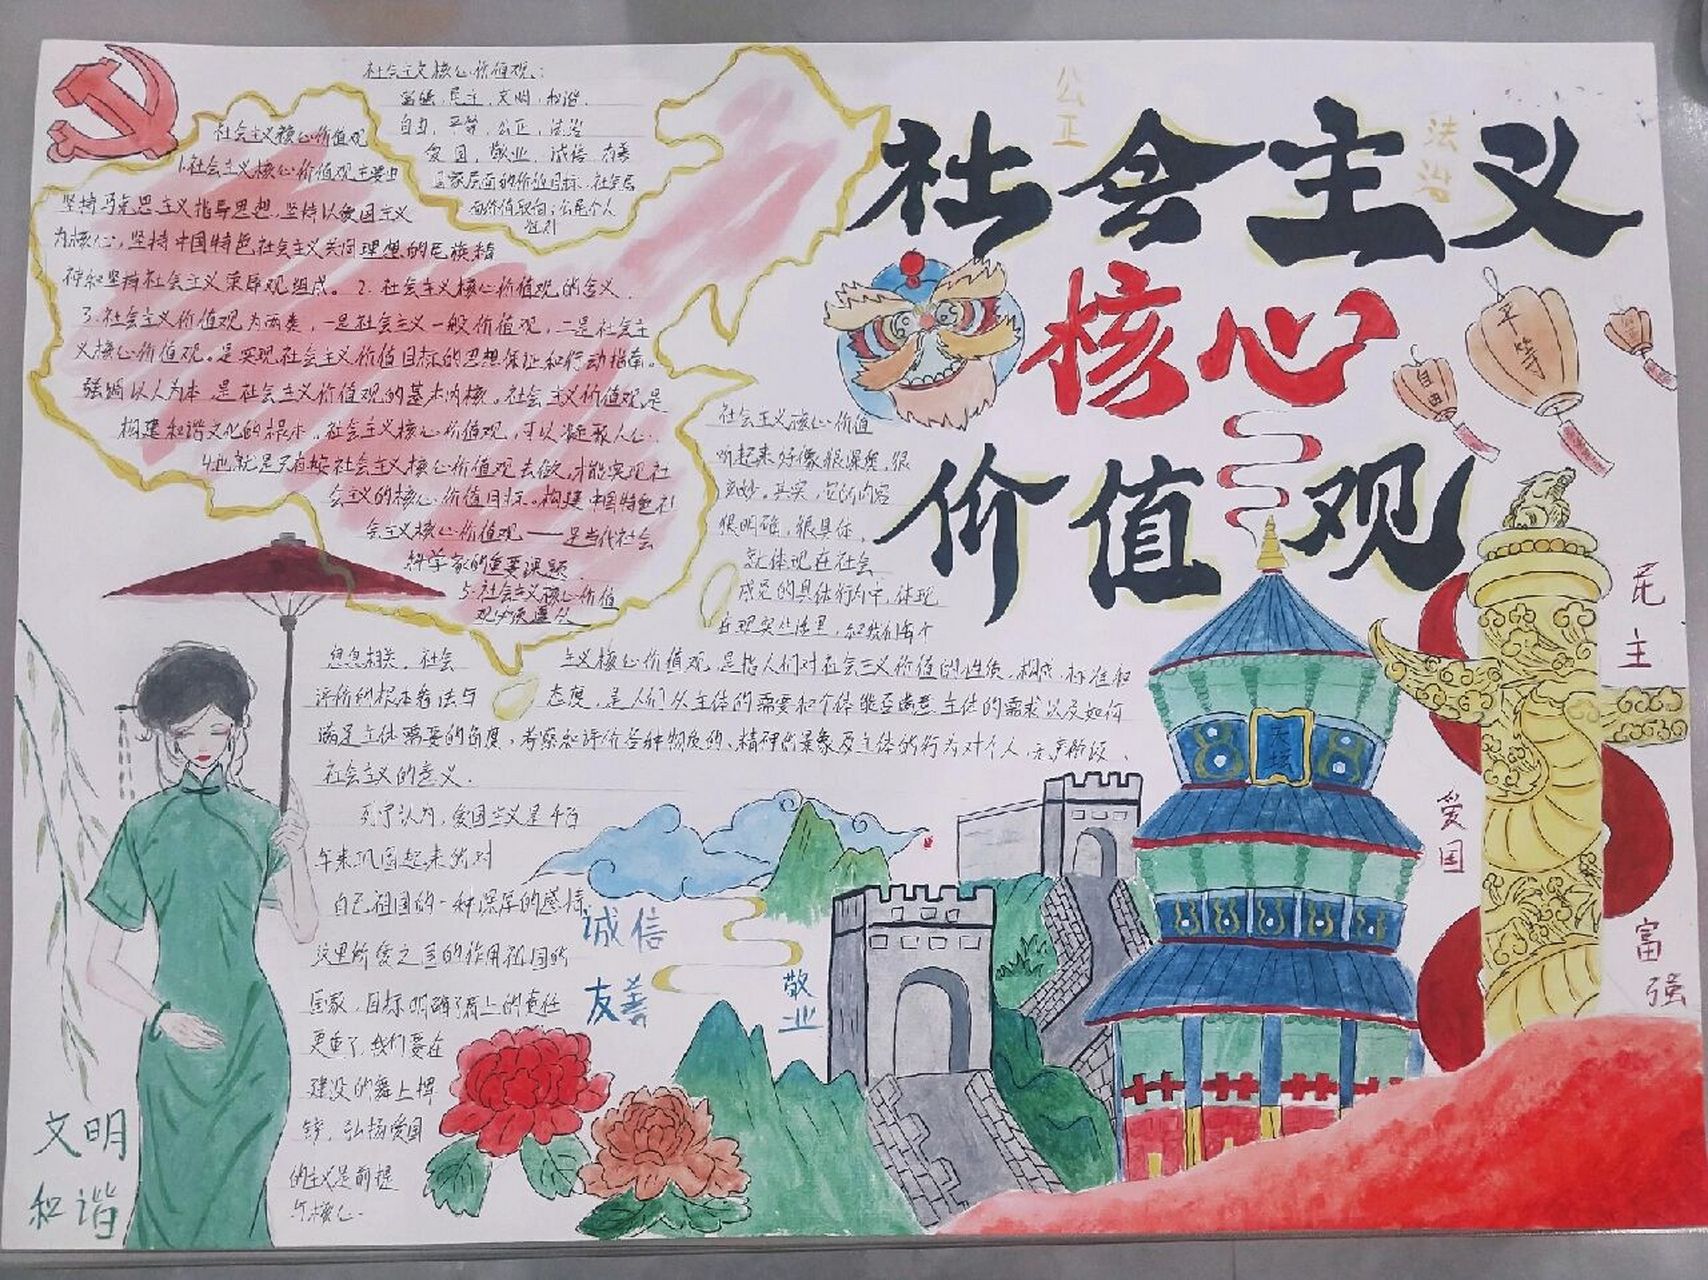 社会主义
核心
价值观
公正
法治
自由
平等
民主
爱国
富强
诚信
友善
敬业
文明
和谐
天坛
社会主义核心价值观：
富强，民主，文明，和谐，
自由，平等，公正，法治
爱国，敬业，诚信，友善
国家层面的价值目标，社会层
面价值取向，公民个人
社会主义核心价值观
1.社会主义核心价值观主要由
坚持马克思主义指导思想，坚持以爱国主义
为核心，坚持中国特色社会主义共同理想的民族精
神和坚持社会主义荣辱观组成。2.社会主义核心价值观的含义
3.社会主义价值观为两类，一是社会主义一般价值观，二是社会主
义核心价值观。是实现社会主义价值目标的思想保证和行动指南。
强调以人为本，是社会主义价值观的基本内核。社会主义价值观是
构建和谐文化的根本。社会主义核心价值观，可以凝聚人心.
4.也就是只有按社会主义核心价值观去做，才能实现社
会主义的核心价值目标。构建中国特色社
会主义核心价值观——是当代社会
科学家的重要课题.
5.社会主义核心价值
社会主义核心价值
听起来好像很深奥，很
玄妙。其实，它的内容
很明确，很具体，
就体现在社会
成员的具体行为中，体现
在现实生活里，和我们每个
息息相关，社会
主义核心价值观，是指人们对社会主义价值的性质，构成，标准和
评价的根本看法与
态度，是人们从主体的需要和客体能否满足主体的需求以及如何
满足主体需要的角度，考察和评价各种物质的，精神的现象及主体的行为对个人，
社会主义的意义.
列宁认为，爱国主义是千百
年来巩固起来的对
自己祖国的一种深厚的感情
国家，目标明确了肩上的责任
更重了，我们要在
弘扬爱国
的主义是前提
与核心.